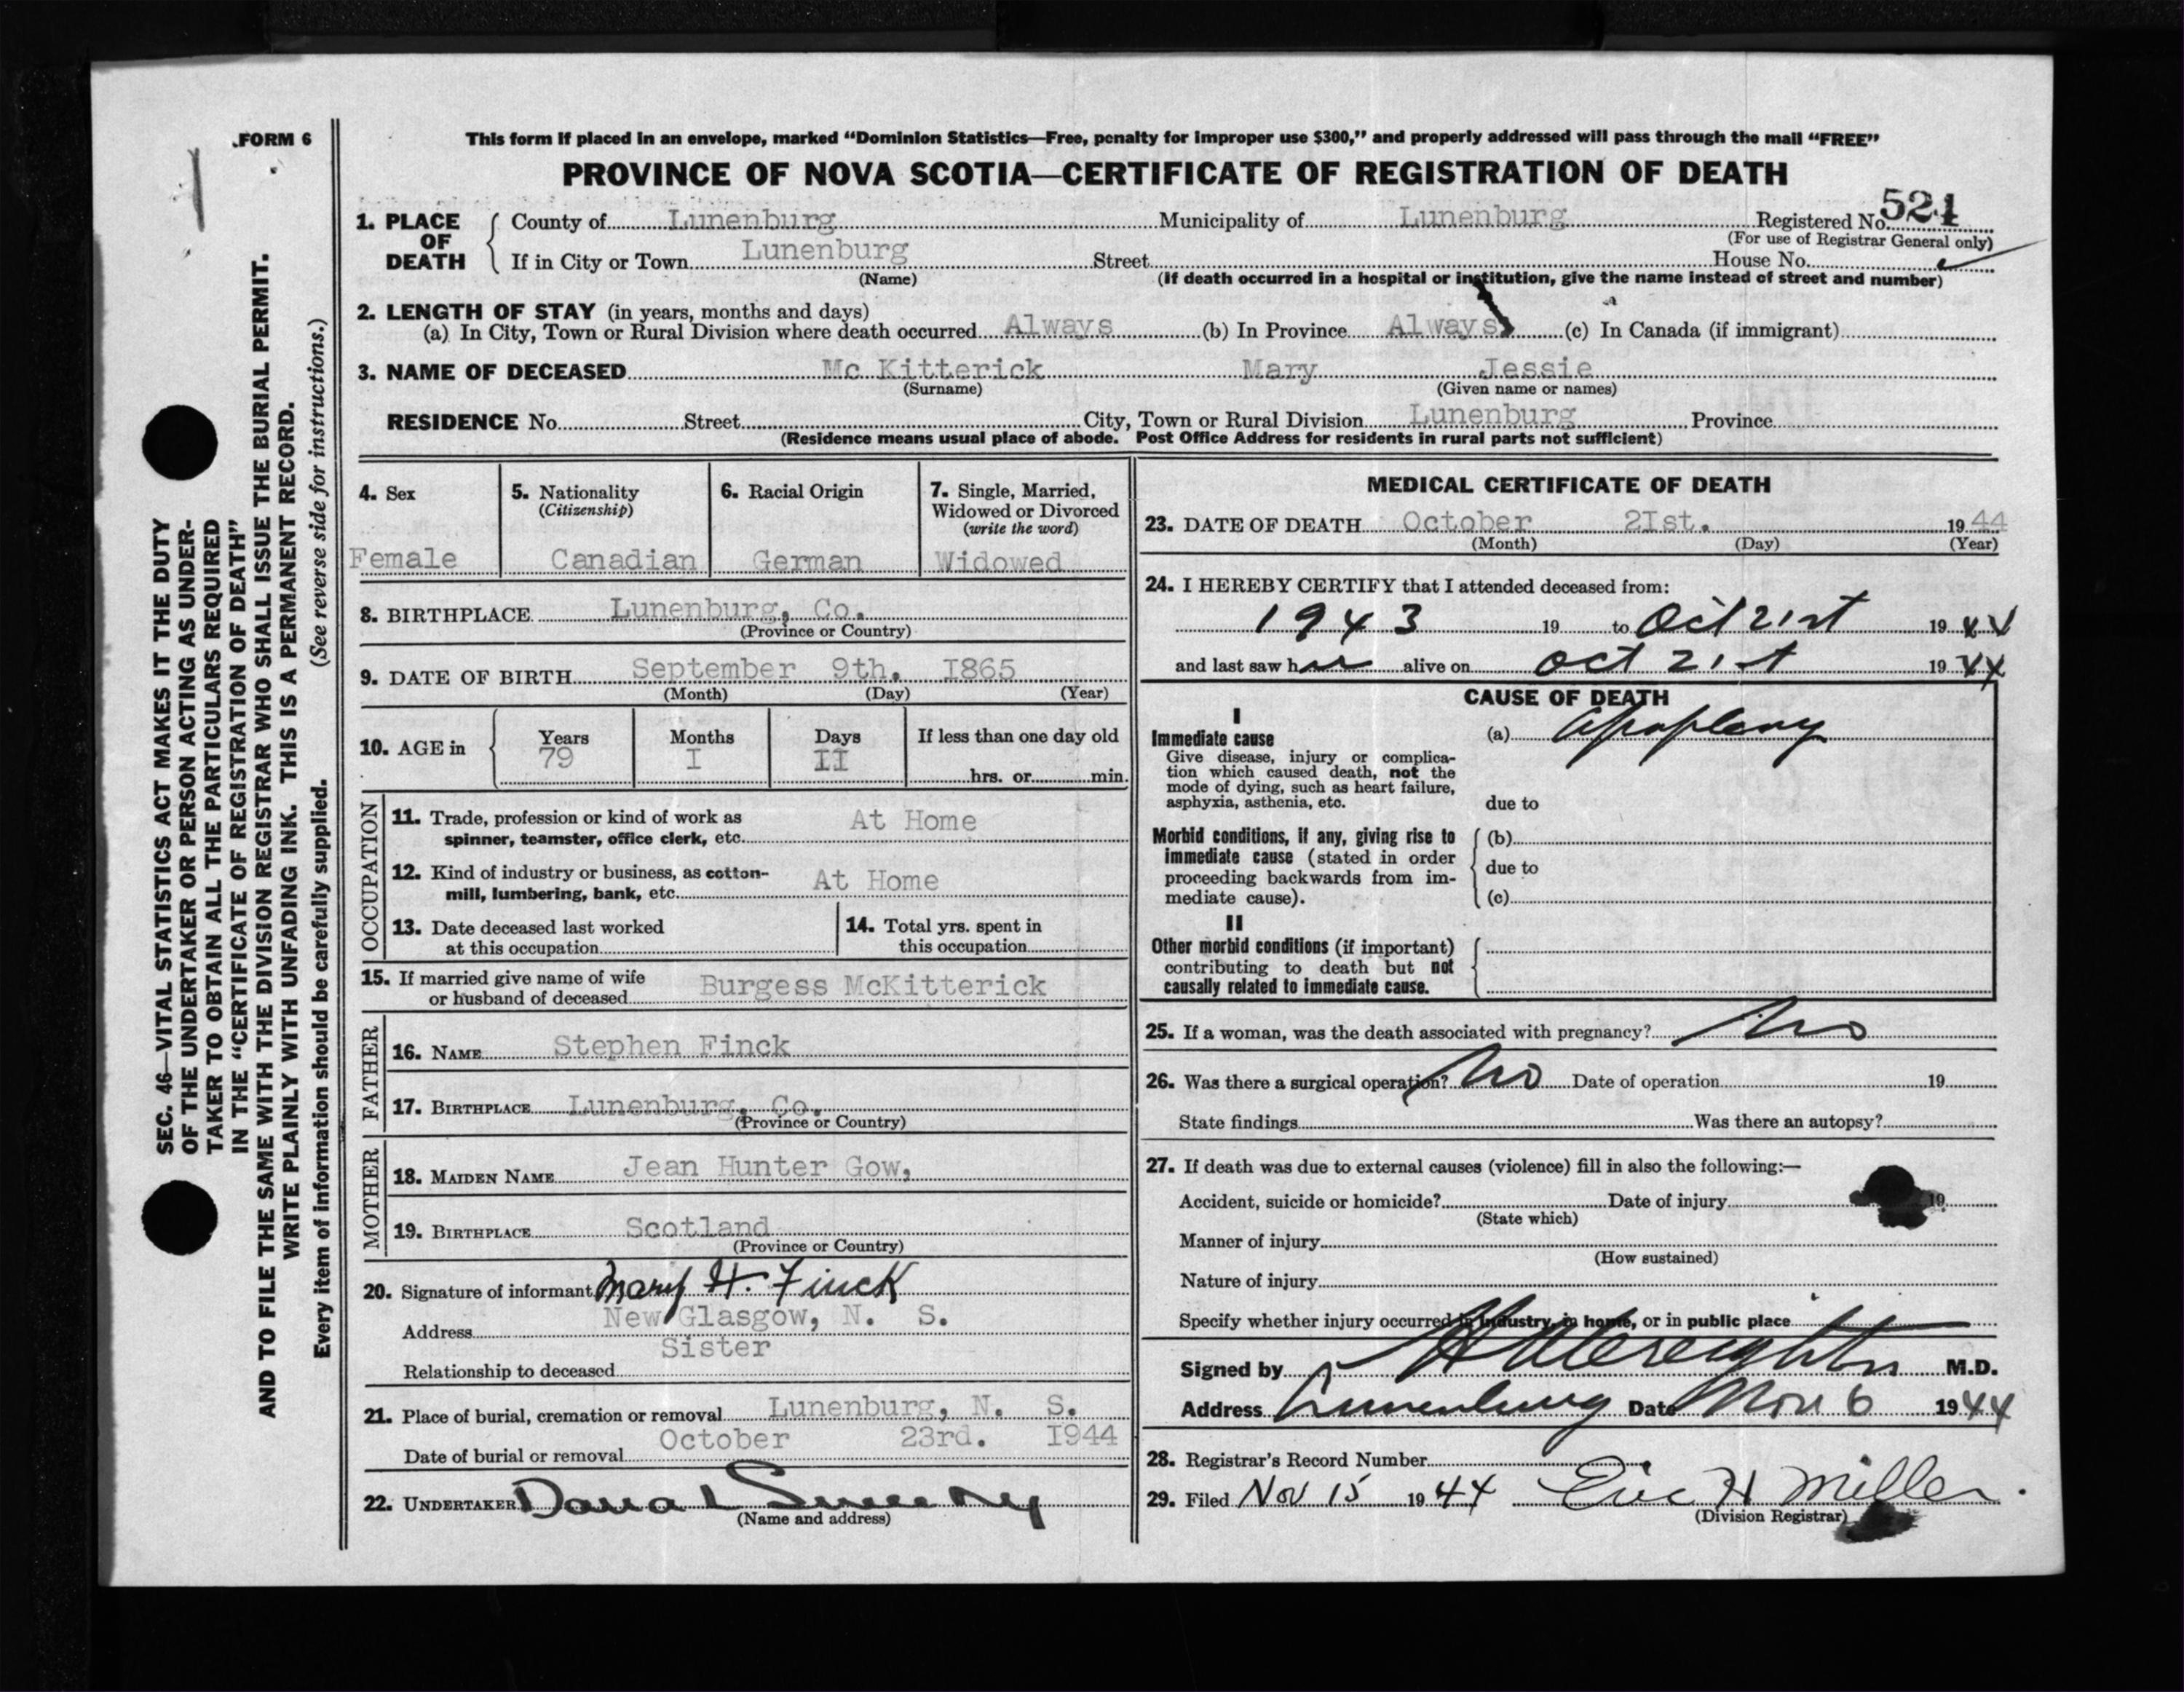 FORM 6
This form if placed in an envelope, marked “Dominion Statistics—Free, penalty for improper use $300,” and properly addressed will pass through the mail “FREE”
PROVINCE OF NOVA SCOTIA—CERTIFICATE OF REGISTRATION OF DEATH
SEC. 46—VITAL STATISTICS ACT MAKES IT THE DUTY
OF THE UNDERTAKER OR PERSON ACTING AS UNDER-
TAKER TO OBTAIN ALL THE PARTICULARS REQUIRED
IN THE “CERTIFICATE OF REGISTRATION OF DEATH”
AND TO FILE THE SAME WITH THE DIVISION REGISTRAR WHO SHALL ISSUE THE BURIAL PERMIT.
WRITE PLAINLY WITH UNFADING INK. THIS IS A PERMANENT RECORD.
Every item of information should be carefully supplied. (See reverse side for instructions.)
1. PLACE OF DEATH County of Lunenburg Municipality of Lunenburg Registered No. 521
(For use of Registrar General only)
If in City or Town Lunenburg Street House No.
(Name) (If death occurred in a hospital or institution, give the name instead of street and number)
2. LENGTH OF STAY (in years, months and days)
(a) In City, Town or Rural Division where death occurred Always (b) In Province Always (c) In Canada (if immigrant)
3. NAME OF DECEASED Mc Kitterick Mary Jessie
(Surname) (Given name or names)
RESIDENCE No. Street City, Town or Rural Division Lunenburg Province
(Residence means usual place of abode. Post Office Address for residents in rural parts not sufficient)
4. Sex
Female
5. Nationality
(Citizenship)
Canadian
6. Racial Origin
German
7. Single, Married,
Widowed or Divorced
(write the word)
Widowed
8. BIRTHPLACE Lunenburg, Co.
(Province or Country)
9. DATE OF BIRTH September 9th. I865
(Month) (Day) (Year)
10. AGE in Years Months Days If less than one day old
79 I II hrs. or min.
OCCUPATION
11. Trade, profession or kind of work as
spinner, teamster, office clerk, etc. At Home
12. Kind of industry or business, as cotton-
mill, lumbering, bank, etc. At Home
13. Date deceased last worked
at this occupation
14. Total yrs. spent in
this occupation
15. If married give name of wife
or husband of deceased Burgess McKitterick
FATHER
16. NAME Stephen Finck
17. BIRTHPLACE Lunenburg, Co.
(Province or Country)
MOTHER
18. MAIDEN NAME Jean Hunter Gow,
19. BIRTHPLACE Scotland
(Province or Country)
20. Signature of informant Mary H. Finck
Address New Glasgow, N. S.
Relationship to deceased Sister
21. Place of burial, cremation or removal Lunenburg, N. S.
Date of burial or removal October 23rd. I944
22. UNDERTAKER
(Name and address)
MEDICAL CERTIFICATE OF DEATH
23. DATE OF DEATH October 2Ist. 1944
(Month) (Day) (Year)
24. I HEREBY CERTIFY that I attended deceased from:
1943 19 to Oct 21st 1944
and last saw her alive on Oct 21st 1944
CAUSE OF DEATH
I
Immediate cause
Give disease, injury or complica-
tion which caused death, not the
mode of dying, such as heart failure,
asphyxia, asthenia, etc.
(a) Apoplexy
due to
Morbid conditions, if any, giving rise to
immediate cause (stated in order
proceeding backwards from im-
mediate cause).
(b)
due to
(c)
II
Other morbid conditions (if important)
contributing to death but not
causally related to immediate cause.
25. If a woman, was the death associated with pregnancy? No
26. Was there a surgical operation? No Date of operation 19
State findings Was there an autopsy?
27. If death was due to external causes (violence) fill in also the following:—
Accident, suicide or homicide? Date of injury 19
(State which)
Manner of injury
(How sustained)
Nature of injury
Specify whether injury occurred in industry, in home, or in public place
Signed by Creighton M.D.
Address Lunenburg Date Nov 6 1944
28. Registrar's Record Number
29. Filed Nov 15 1944 Eric H Miller.
(Division Registrar)